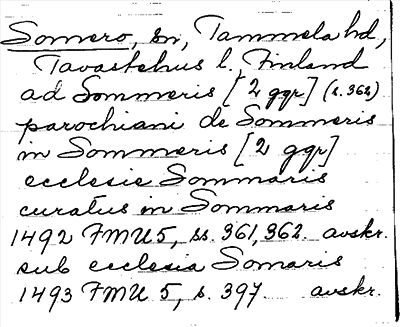 Somero, sn, Tammela hd,
Tavastehus l. Finland
ad Sommeris [2 ggr] (s. 362)
parochiani de Sommeris
in Sommeris [2 ggr]
ecclesie Sommaris
curatus in Sommaris
1492 FMU 5, ss. 361, 362. avskr.
sub ecclesia Somaris
1493 FMU 5, s. 397. avskr.